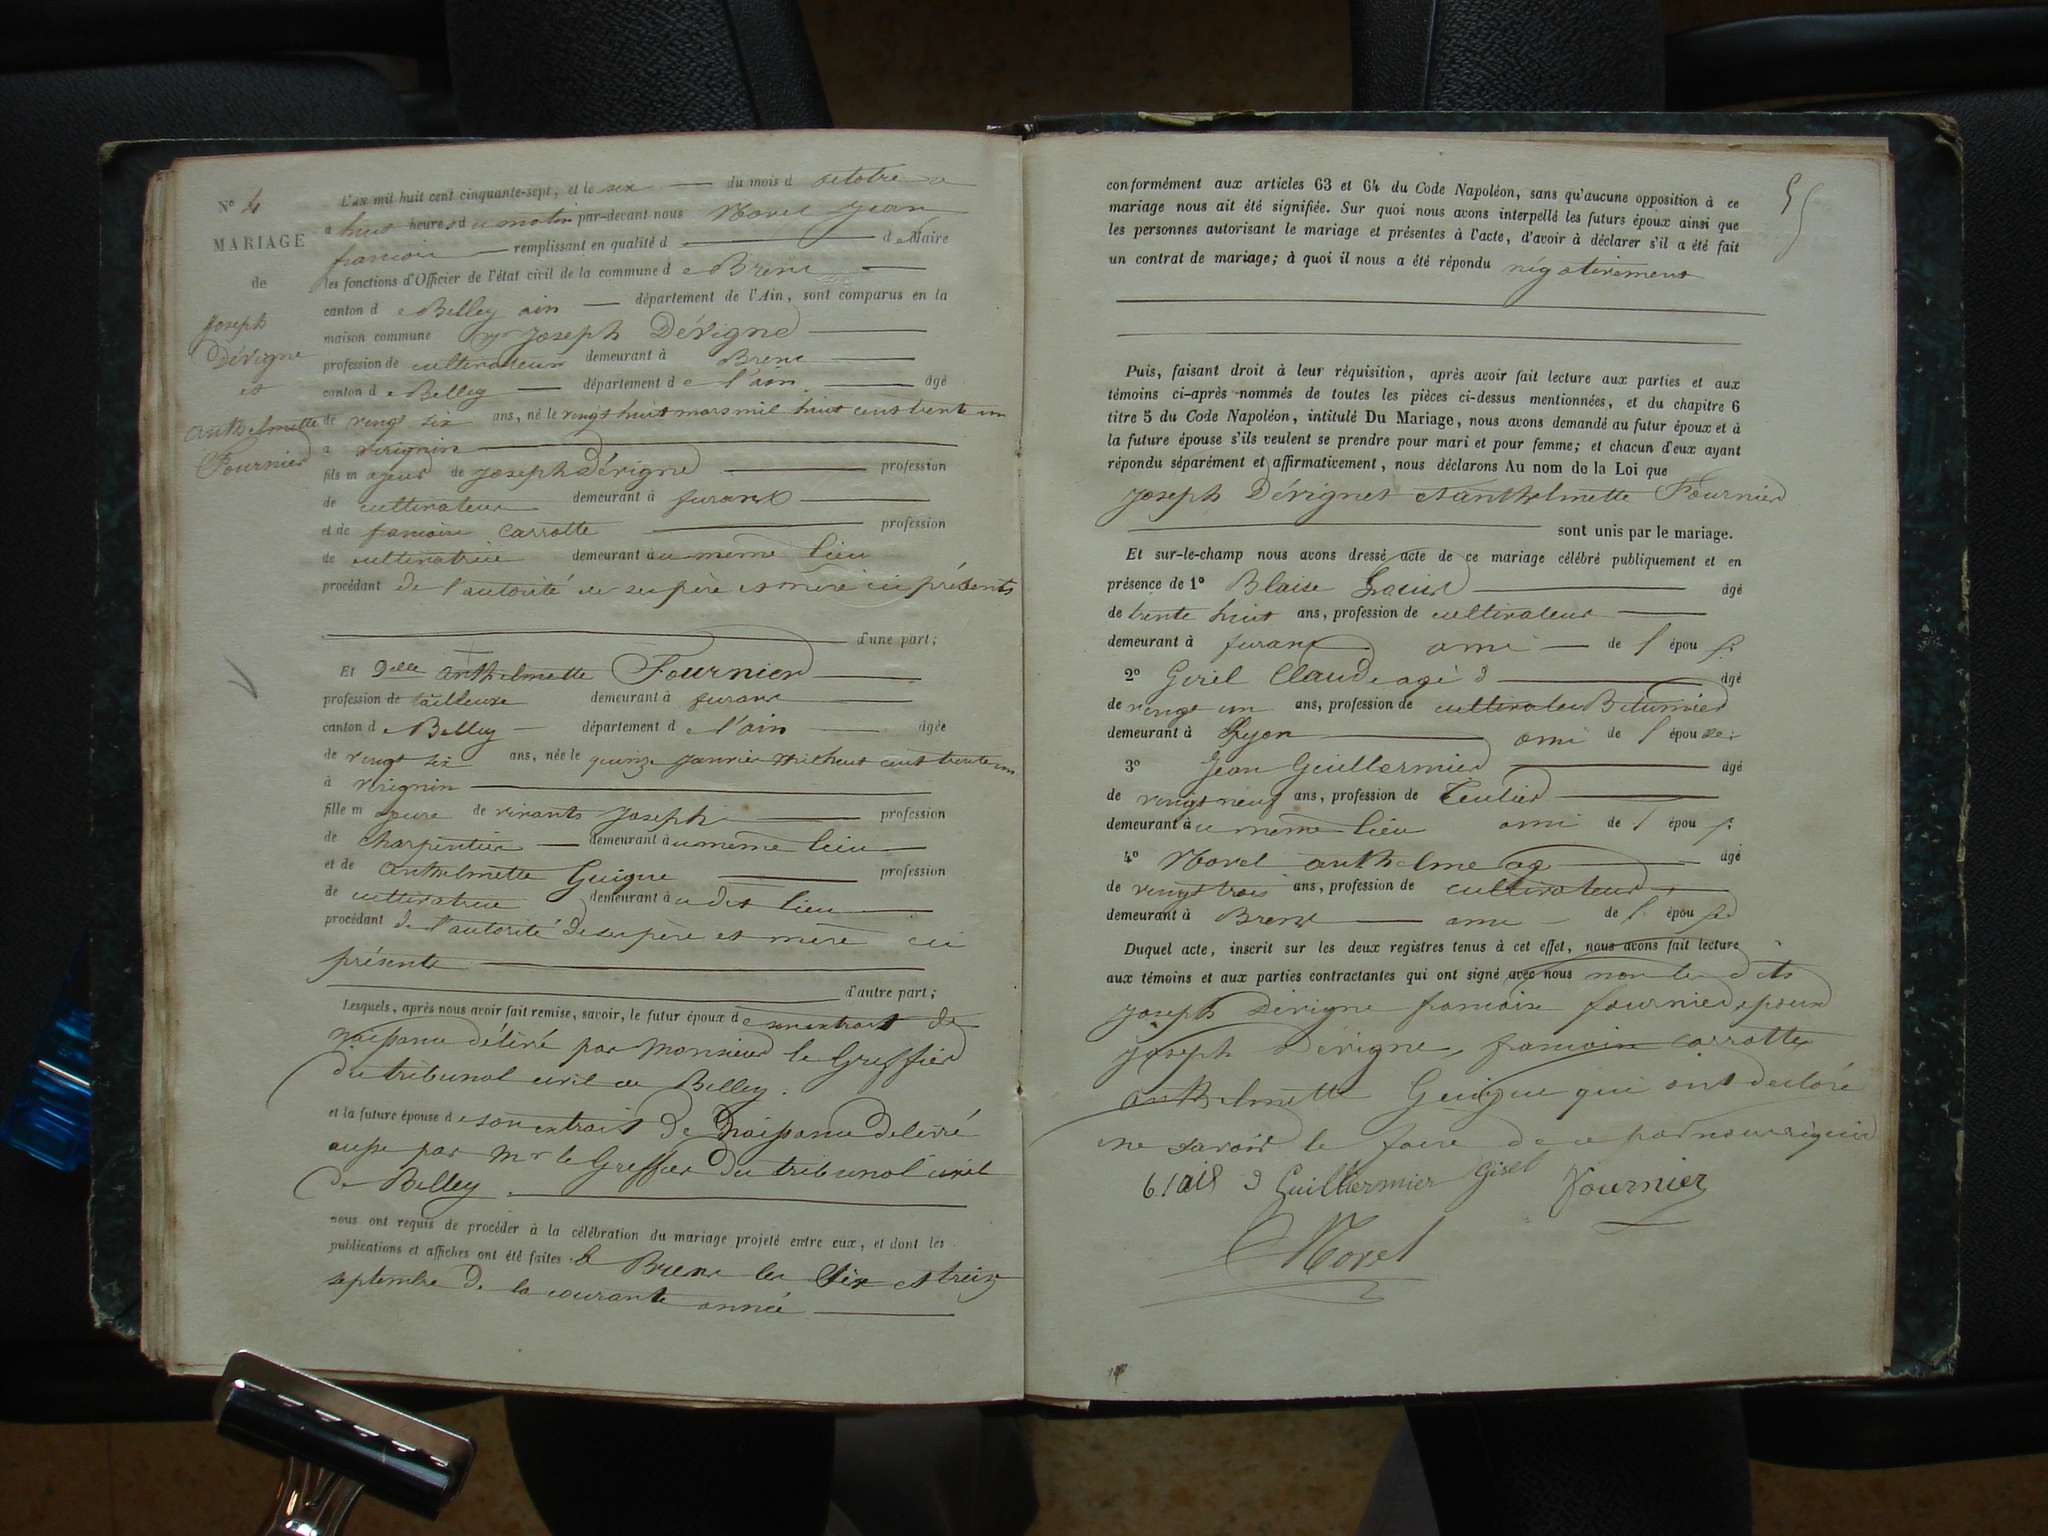 N° 4
MARIAGE
de
Joseph
Dévigne
et
anthelmette
Fournier
L'AN mil huit cent cinquante-sept, et le six du mois d octobre a
à huit heures du matin par-devant nous Morel Jean
francois remplissant en qualité d de Maire
les fonctions d'Officier de l'état civil de la commune de Brens
canton de Belley ain département de l'Ain, sont comparus en la
maison commune Joseph Dévigne
profession de cultivateur demeurant à Brens
canton de Belley département de l'ain âgé
de vingt six ans, né le vingt huit mars mil huit cent trente un
à virignin
fils majeur de Joseph Dévigne profession
de cultivateur demeurant à furans
et de francoise Carrotte profession
de cultivatrice demeurant au meme lieu
procédant de l'autorité de ses père et mère ici présents
d'une part;
Et Delle anthelmette Fournier
profession de tailleuse demeurant à furans
canton de Belley département de l'ain âgée
de vingt six ans, née le quinze janvier mil huit cent trente un
à virignin
fille majeure de vivants Joseph profession
de charpentier demeurant au meme lieu
et de anthelmette Guigue profession
de cultivatrice demeurant au dit lieu
procédant de l'autorité de ses père et mère ici
présents
d'autre part;
Lesquels, après nous avoir fait remise, savoir, le futur époux de son extrait de
naissance délivré par Monsieur le Greffier
du tribunal civil de Belley.
et la future épouse de son extrait de naissance délivré
aussi par Mr le Greffier du tribunal civil
de Belley.
nous ont requis de procéder à la célébration du mariage projeté entre eux, et dont les
publications et affiches ont été faites à Brens les six et treize
septembre de la courante année
55
conformément aux articles 63 et 64 du Code Napoléon, sans qu'aucune opposition à ce
mariage nous ait été signifiée. Sur quoi nous avons interpellé les futurs époux ainsi que
les personnes autorisant le mariage et présentes à l'acte, d'avoir à déclarer s'il a été fait
un contrat de mariage; à quoi il nous a été répondu négativement
Puis, faisant droit à leur réquisition, après avoir fait lecture aux parties et aux
témoins ci-après nommés de toutes les pièces ci-dessus mentionnées, et du chapitre 6
titre 5 du Code Napoléon, intitulé Du Mariage, nous avons demandé au futur époux et à
la future épouse s'ils veulent se prendre pour mari et pour femme; et chacun d'eux ayant
répondu séparément et affirmativement, nous déclarons Au nom de la Loi que
Joseph Dévigne et anthelmette Fournier
sont unis par le mariage.
Et sur-le-champ nous avons dressé acte de ce mariage célébré publiquement et en
présence de 1° Blaise Louis âgé
de trente huit ans, profession de cultivateur
demeurant à furans ami de l épou
2° Girel Claude agé d âgé
de vingt un ans, profession de cultivateur
demeurant à Lyon ami de l épou
3° Jean Guillermier âgé
de vingt neuf ans, profession de
demeurant au meme lieu ami de l épou
4° Morel anthelme ag âgé
de vingt trois ans, profession de cultivateur
demeurant à Brens ami de l épou
Duquel acte, inscrit sur les deux registres tenus à cet effet, nous avons fait lecture
aux témoins et aux parties contractantes qui ont signé avec nous non les dits
Joseph Dévigne francoise fournier epoux
Joseph Dévigne, francoise Carrotte
anthelmette Guigue qui ont declaré
ne savoir le faire de ce par nous requis
blais d Guilliermier Girel Fournier
Morel